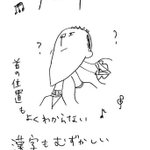 ?
?
首の位置も
よくわからない
漢字もむずかしい